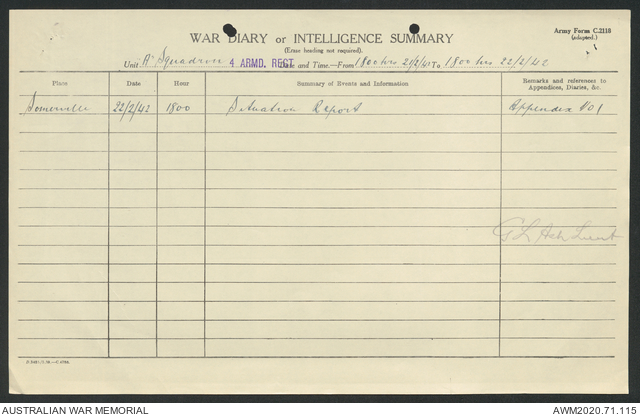 Army Form C.2118
(adapted.)
WAR DIARY or INTELLIGENCE SUMMARY
(Erase heading not required).
Unit "A" Squadron 4 ARMD. REGT. Date and Time.—From 1800 hrs 21/2/42 To 1800 hrs 22/2/42
Place Date Hour Summary of Events and Information Remarks and references to Appendices, Diaries, &c.
Somerville 22/2/42 1800 Situation Report Appendix No 1
G L Lieut
AUSTRALIAN WAR MEMORIAL AWM2020.71.115